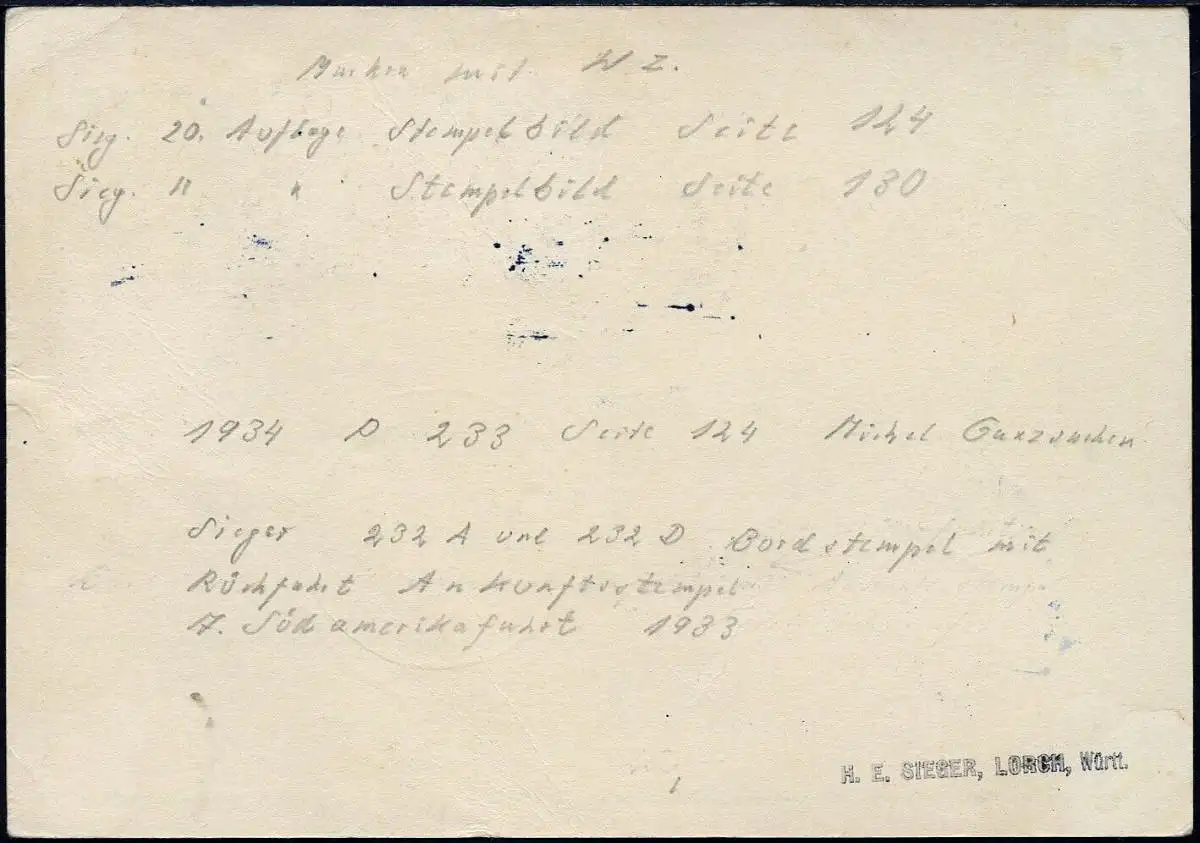 Marken mit WZ.
Sieg. 20. Auflage Stempelbild Seite 124
Sieg. " " Stempelbild Seite 130
1934 P 233 Seite 124 Michel Ganzsachen
Sieger 232 A und 232 D Bordstempel mit
Rückfahrt Ankunftsstempel
7. Südamerikafahrt 1933
H. E. SIEGER, LORCH, Württ.